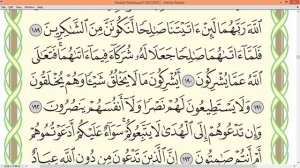 Mushaf Madina.pdf (SECURED) - Adobe Reader
ٱللَّهَ رَبَّهُمَا لَئِنْ ءَاتَيْتَنَا صَٰلِحًا لَّنَكُونَنَّ مِنَ ٱلشَّٰكِرِينَ ١٨٩
فَلَمَّآ ءَاتَىٰهُمَا صَٰلِحًا جَعَلَا لَهُۥ شُرَكَآءَ فِيمَآ ءَاتَىٰهُمَا فَتَعَٰلَى
ٱللَّهُ عَمَّا يُشْرِكُونَ ١٩٠ أَيُشْرِكُونَ مَا لَا يَخْلُقُ شَيْـًٔا وَهُمْ يُخْلَقُونَ
١٩١ وَلَا يَسْتَطِيعُونَ لَهُمْ نَصْرًا وَلَآ أَنفُسَهُمْ يَنصُرُونَ ١٩٢
وَإِن تَدْعُوهُمْ إِلَى ٱلْهُدَىٰ لَا يَتَّبِعُوكُمْ سَوَآءٌ عَلَيْكُمْ أَدَعَوْتُمُوهُمْ
أَمْ أَنتُمْ صَٰمِتُونَ ١٩٣ إِنَّ ٱلَّذِينَ تَدْعُونَ مِن دُونِ ٱللَّهِ عِبَادٌ